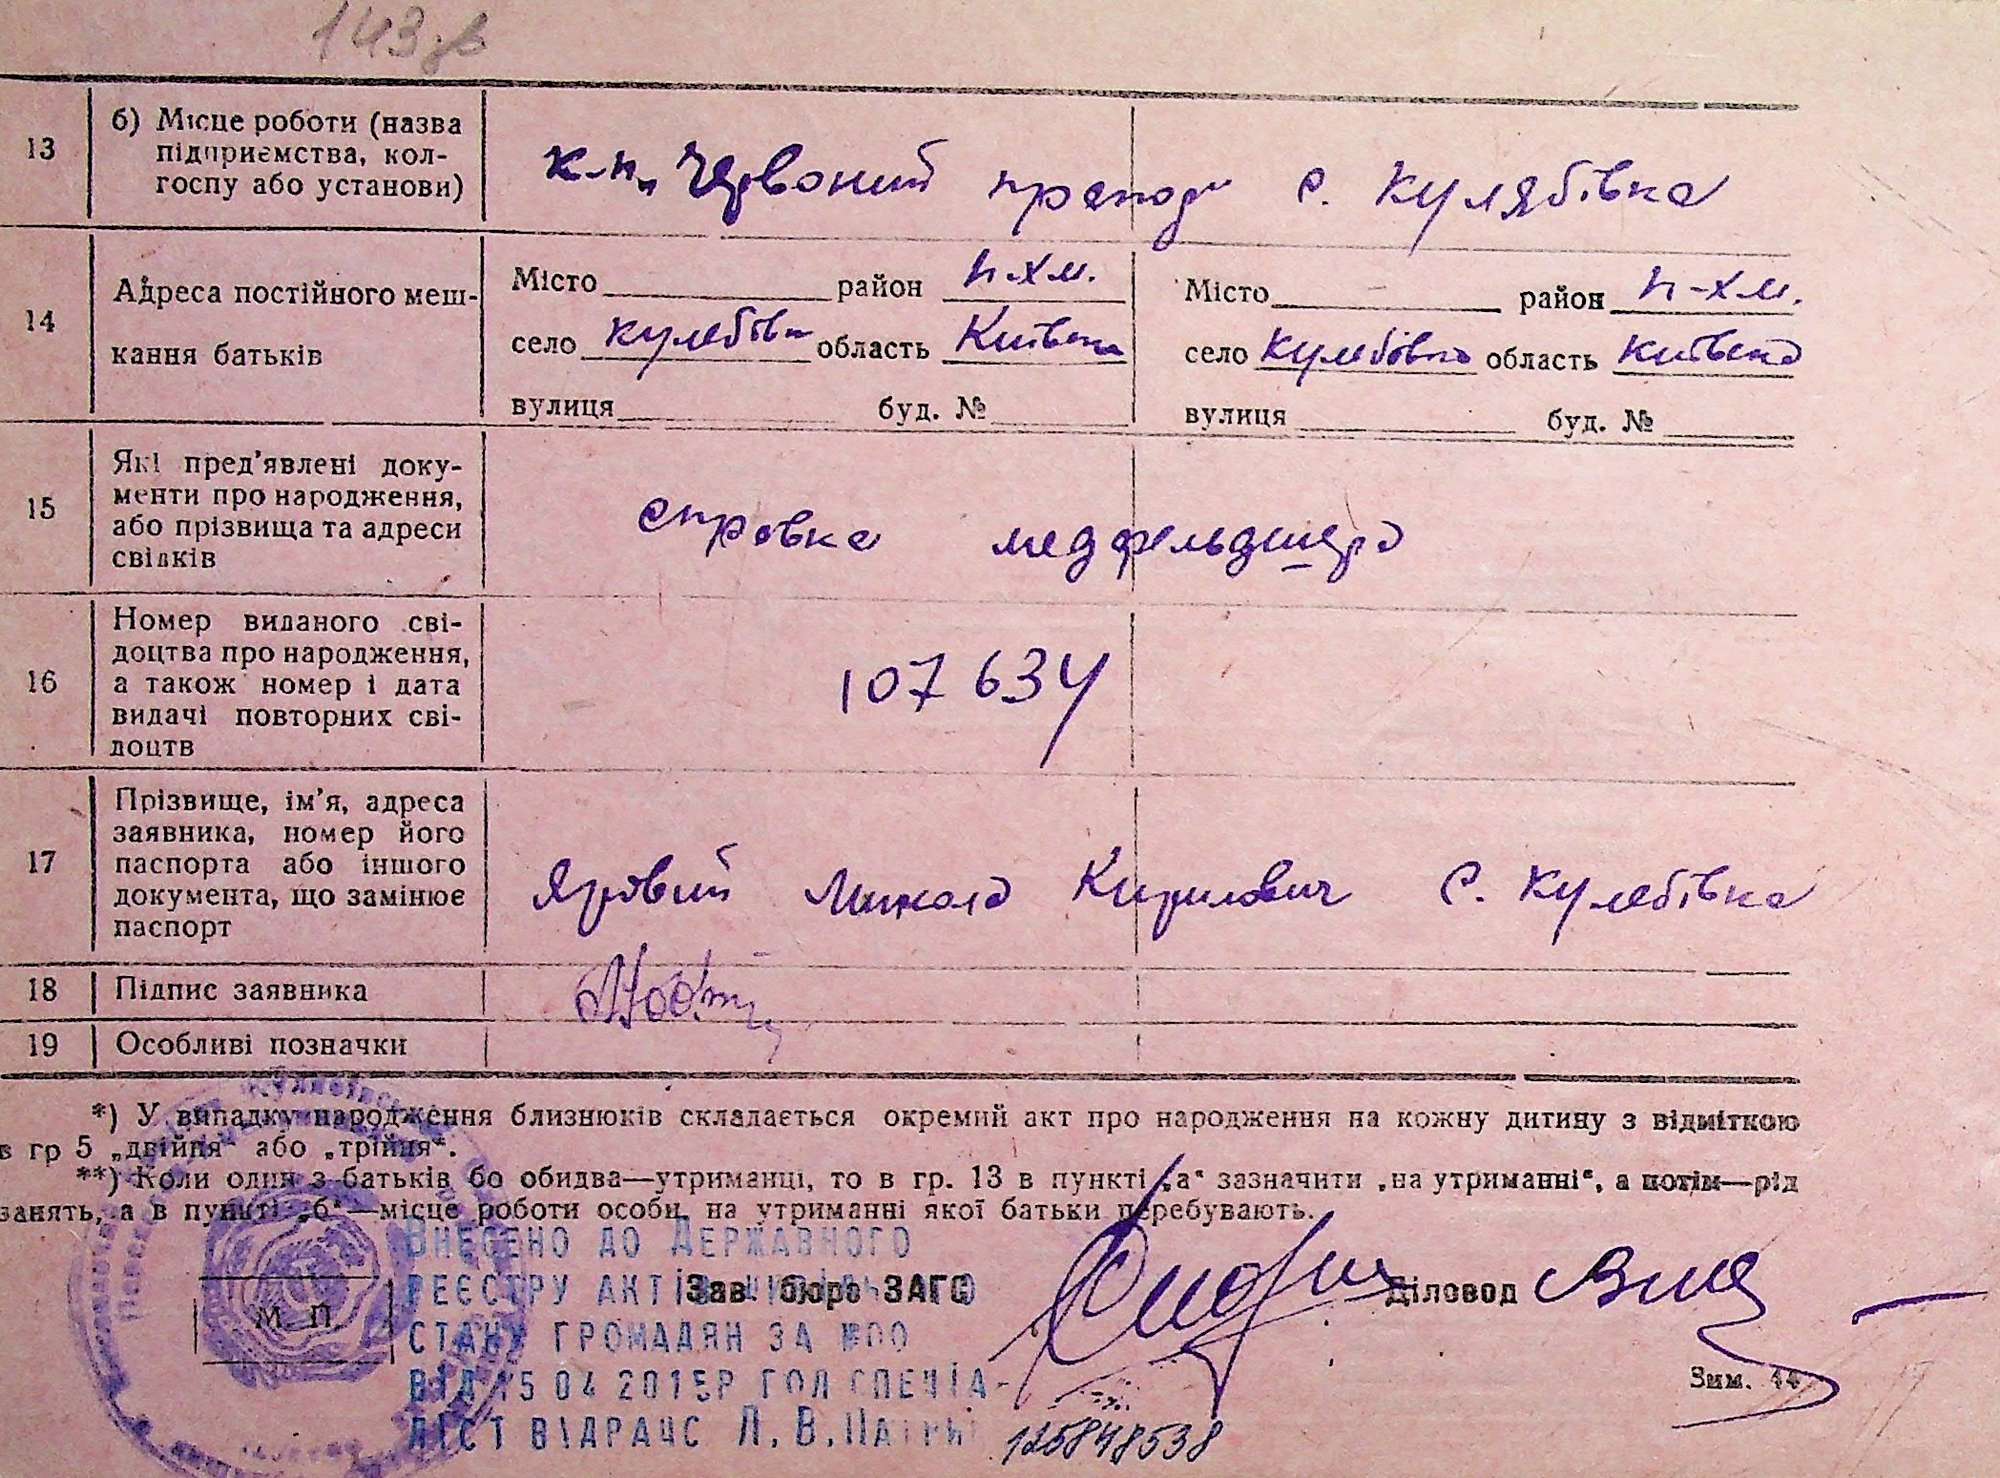 143 зв
13 б) Місце роботи (назва
підприємства, кол-
госпу або установи)
к-п „Червоний прапор" с. Кулябівка
14 Адреса постійного меш-
кання батьків
Місто район п-хм. Місто район п-хм.
село Кулебівк область Київська село Кулебівка область Київська
вулиця буд. № вулиця буд. №
15 Які пред'явлені доку-
менти про народження,
або прізвища та адреси
свідків
справка медфельдшера
16 Номер виданого сві-
доцтва про народження,
а також номер і дата
видачі повторних сві-
доцтв
107634
17 Прізвище, ім'я, адреса
заявника, номер його
паспорта або іншого
документа, що замінює
паспорт
Яровий Микола Кирилович с. Кулебівка
18 Підпис заявника
19 Особливі позначки
*) У випадку народження близнюків складається окремий акт про народження на кожну дитину з відміткою
в гр 5 „двійня" або „трійня".
**) Коли один з батьків бо обидва—утриманці, то в гр. 13 в пункті „а" зазначити „на утриманні", а потім—рід
занять, а в пункті „б"—місце роботи особи, на утриманні якої батьки перебувають.
М П
Зав. бюро ЗАГС Діловод
Внесено до Державного
реєстру актів цивільного
стану громадян за №00
від 15 04 2015р гол спеціа-
ліст відрацс Л. В.
125848538
Зим. 44